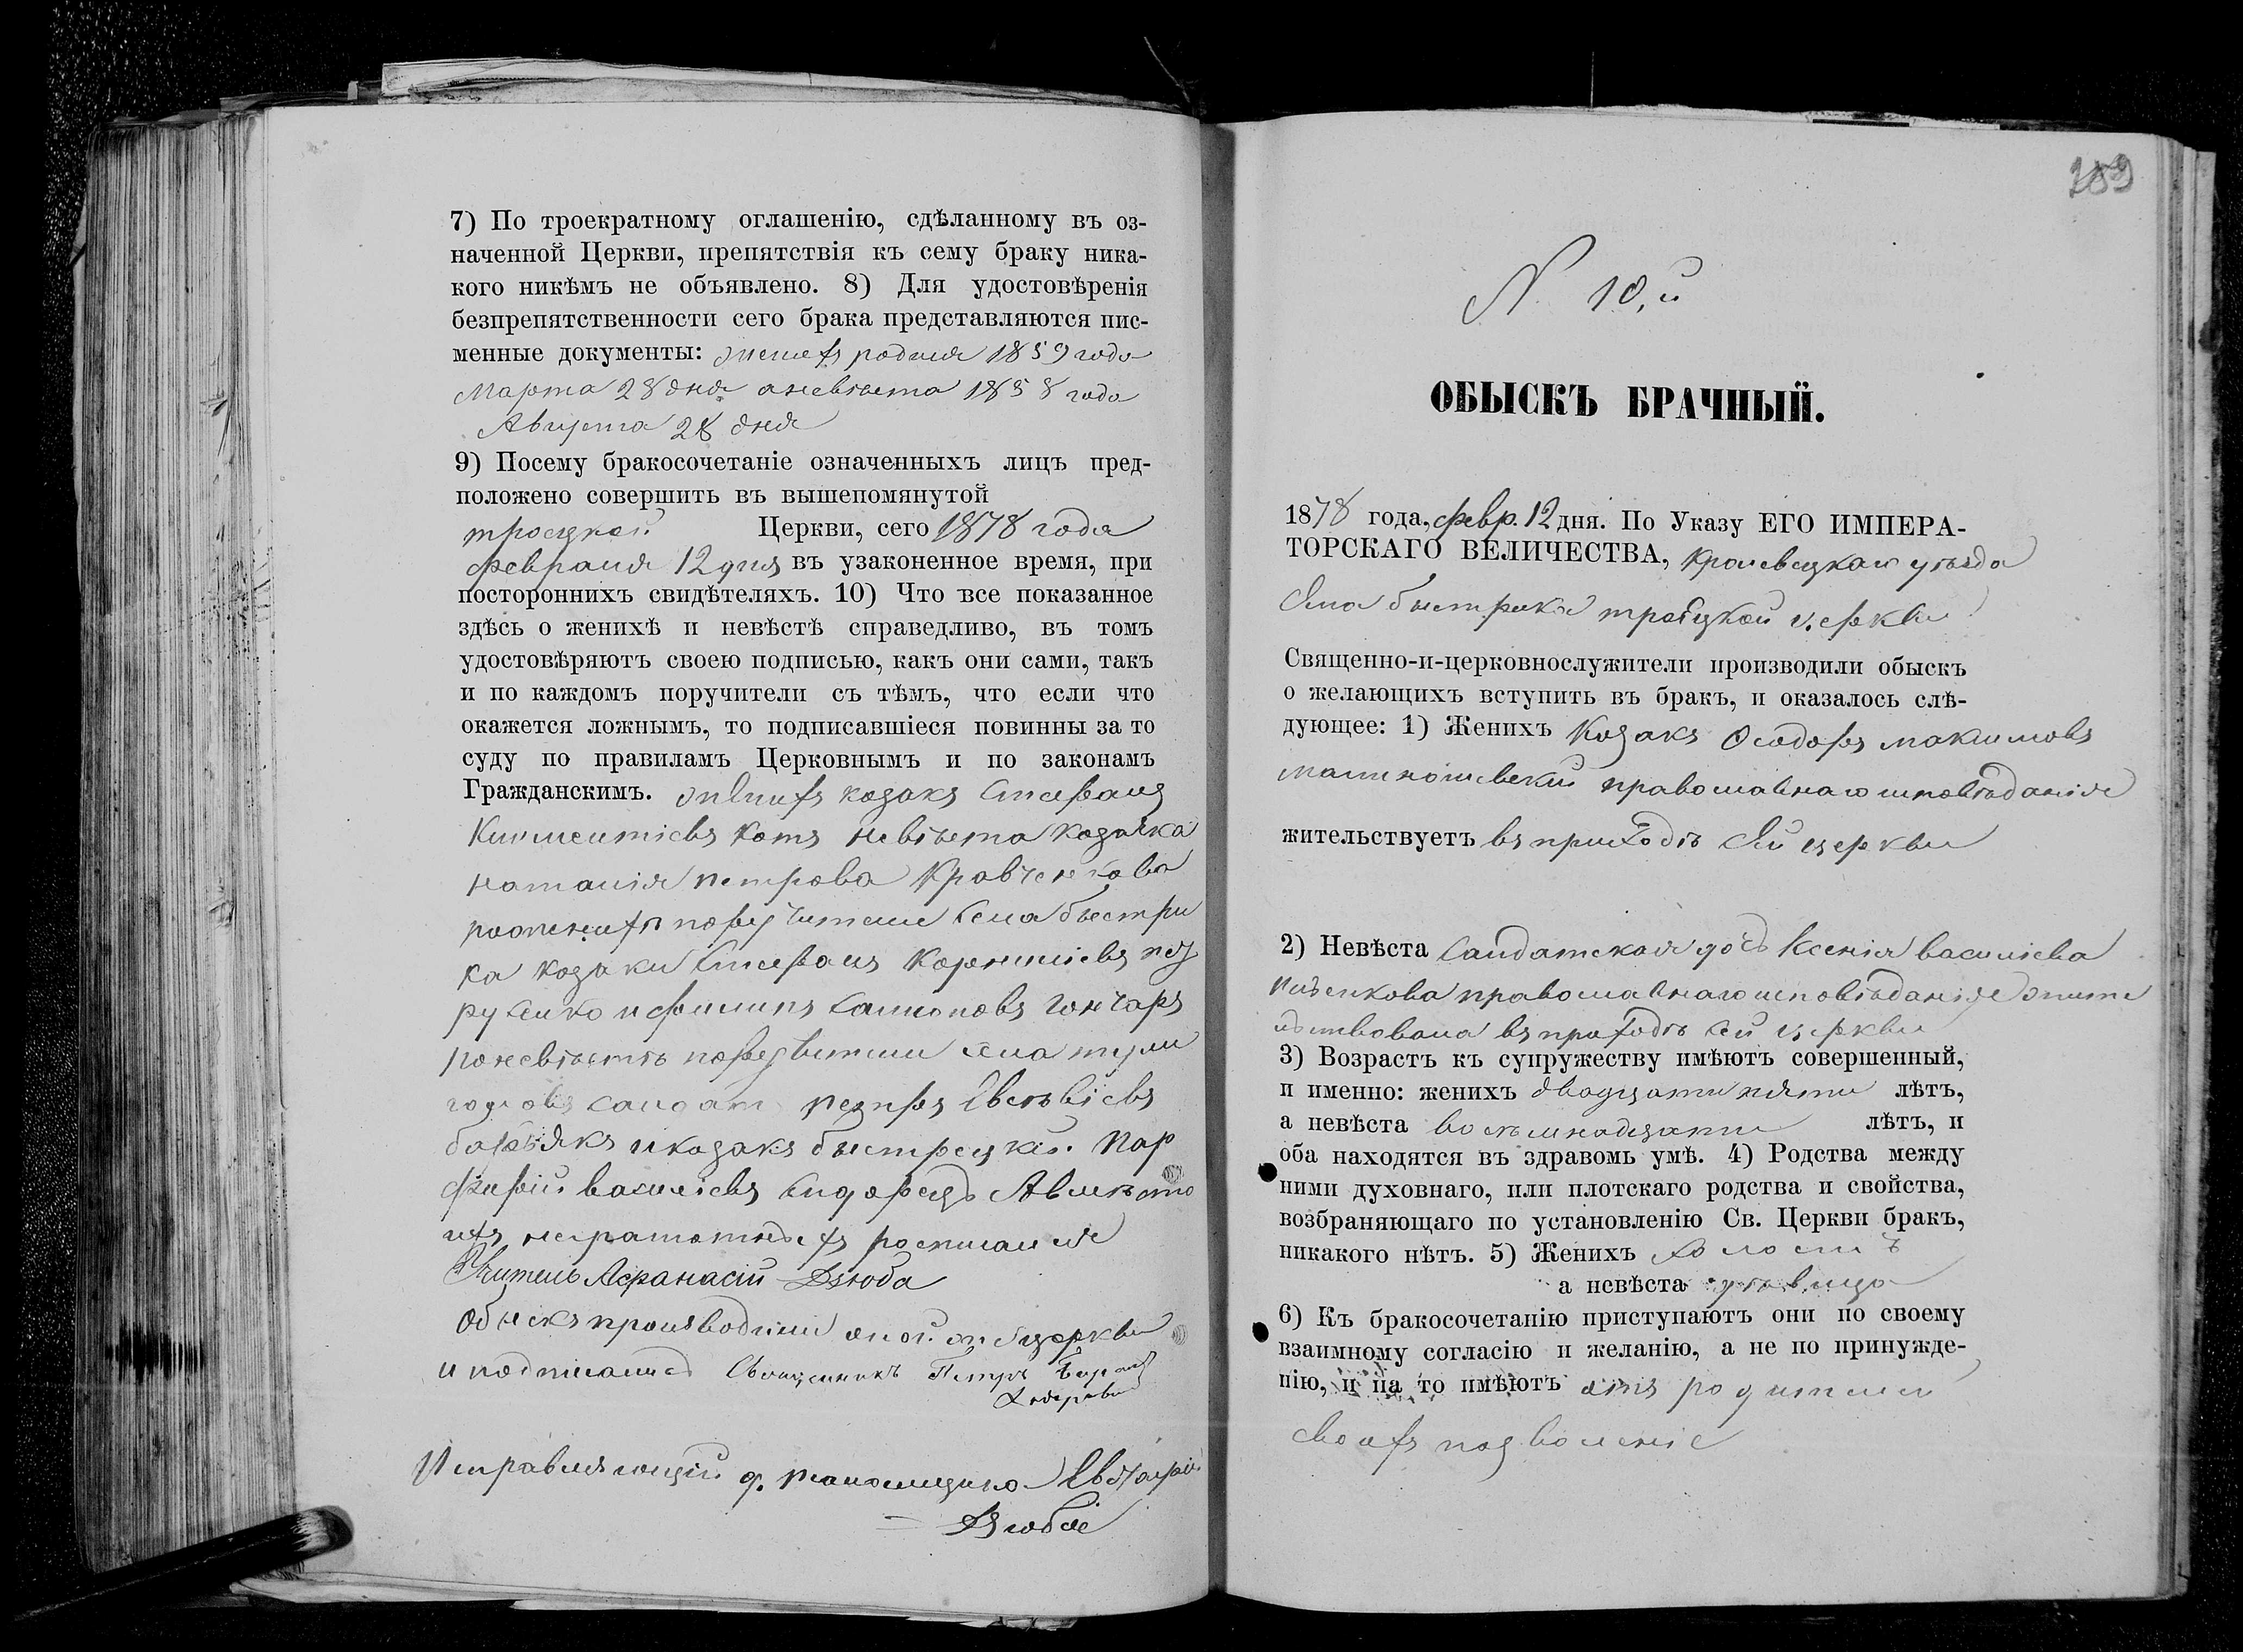 7) По троекратному оглашенію, сдѣланному въ оз-
наченной Церкви, препятствія къ сему браку ника-
кого никѣмъ не объявлено. 8) Для удостовѣренія
безпрепятственности сего брака представляются пис-
менные документы: родился 1859 года
Марта 28 дня а невѣста 1858 года
Августа 28 дня
9) Посему бракосочетаніе означенныхъ лицъ пред-
положено совершить въ вышепомянутой
троецкой Церкви, сего 1878 года
февраля 12 дня въ узаконенное время, при
постороннихъ свидѣтеляхъ. 10) Что все показанное
здѣсь о женихѣ и невѣстѣ справедливо, въ томъ
удостовѣряютъ своею подписью, какъ они сами, такъ
и по каждомъ поручители съ тѣмъ, что если что
окажется ложнымъ, то подписавшіеся повинны за то
суду по правиламъ Церковнымъ и по законамъ
Гражданскимъ. козакъ Стефанъ
Климентіевъ Котъ невѣста козачка
наталія петрова Кравченкова
поженихѣ поручители села быстри
ка козаки Стефанъ Корниліевъ
и филипъ гончаръ
поневѣстѣ поручители села тули
головъ солдат Евсѣвіевъ
и козакъ быстрецкій Пор
фирій василіевъ Сидорецъ А вмѣсто
ихъ неграмотныхъ росписался
Учитель Афанасій Дзюба
Обыскъ производили оной церкви
и подписались Священникъ Петръ
Исправляющій д. псаломщика Евстафій
Дзюба
189
N. 10.й
ОБЫСКЪ БРАЧНЫЙ.
1878 года, февр. 12 дня. По Указу ЕГО ИМПЕРА-
ТОРСКАГО ВЕЛИЧЕСТВА, Кролевецкаго уѣзда
Села быстрика троецкой церкви
Священно-и-церковнослужители производили обыскъ
о желающихъ вступить въ бракъ, и оказалось слѣ-
дующее: 1) Женихъ Козакъ Ѳеодоръ максимовъ
православнаго исповѣданія
жительствуетъ въ приходѣ Сей церкви
2) Невѣста Салдатская дочь Ксенія василіева
православнаго исповѣданія жите
льствовала въ приходѣ Сей церкви
3) Возрастъ къ супружеству имѣютъ совершенный,
и именно: женихъ двадцати пяти лѣтъ,
а невѣста восемнадцати лѣтъ, и
оба находятся въ здравомъ умѣ. 4) Родства между
ними духовнаго, или плотскаго родства и свойства,
возбраняющаго по установленію Св. Церкви бракъ,
никакого нѣтъ. 5) Женихъ холостъ
а невѣста дѣвица
6) Къ бракосочетанію приступаютъ они по своему
взаимному согласію и желанію, а не по принужде-
нію, и на то имѣютъ отъ родителей
своихъ позволеніе